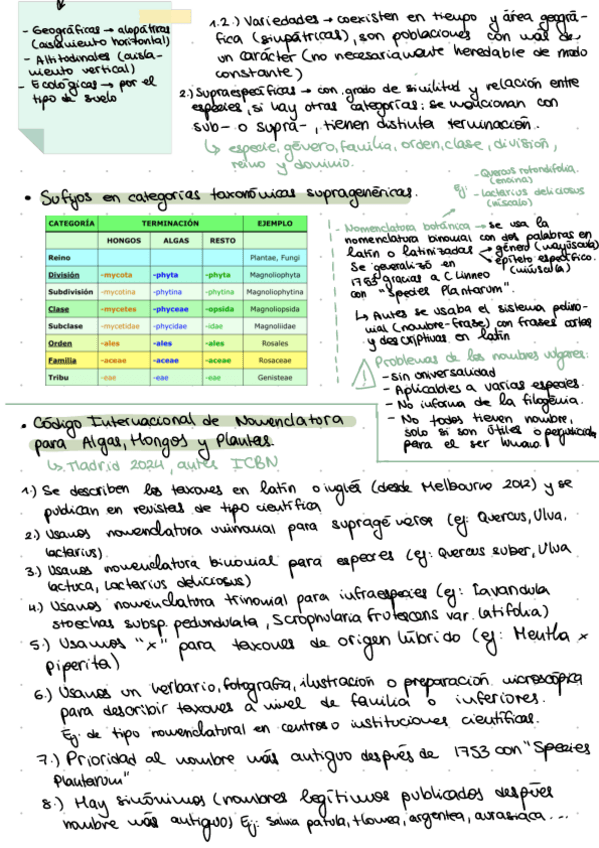 - Geográficas → alopátricas
(aislamiento horizontal)
- Altitudinales (aisla-
miento vertical)
- Ecológicas → por el
tipo de suelo
1.2.) Variedades → coexisten en tiempo y área geográ-
fica (simpátricas), son poblaciones con más de
un carácter (no necesariamente heredable de modo
constante)
2.) Supraespecíficas → con grado de similitud y relación entre
especies, si hay otras categorías: se mencionan con
sub- o supra-, tienen distinta terminación.
↳ especie, género, familia, orden, clase, división,
reino y dominio.
• Sufijos en categorías taxonómicas supragenéricas.
CATEGORÍA TERMINACIÓN EJEMPLO
HONGOS ALGAS RESTO
Reino Plantae, Fungi
División -mycota -phyta -phyta Magnoliophyta
Subdivisión -mycotina -phytina -phytina Magnoliophytina
Clase -mycetes -phyceae -opsida Magnoliopsida
Subclase -mycetidae -phycidae -idae Magnoliidae
Orden -ales -ales -ales Rosales
Familia -aceae -aceae -aceae Rosaceae
Tribu -eae -eae -eae Genisteae
- Quercus rotundifolia
(encina)
Ej: - Lactarius deliciosus
(níscalo)
- Nomenclatura botánica → se usa la
nomenclatura binomial con dos palabras en
latín o latinizadas género (mayúscula)
epíteto específico.
(minúscula)
Se generalizó en
1753 gracias a C. Linneo
con "Species Plantarum".
↳ Antes se usaba el sistema polino-
mial (nombre-frase) con frases cortas
y descriptivas en latín
Problemas de los nombres vulgares:
- Sin universalidad
- Aplicables a varias especies.
- No informa de la filogenia.
- No todos tienen nombre,
solo si son útiles o perjudiciales
para el ser humano.
• Código Internacional de Nomenclatura
para Algas, Hongos y Plantas.
↳ Madrid 2024, antes ICBN
1.) Se describen los taxones en latín o inglés (desde Melbourne 2012) y se
publican en revistas de tipo científica
2.) Usamos nomenclatura uninomial para supragéneros (ej: Quercus, Ulva,
lactarius).
3.) Usamos nomenclatura binomial para especies (ej: Quercus suber, Ulva
lactuca, Lactarius deliciosus)
4.) Usamos nomenclatura trinomial para infraespecies (ej: Lavandula
stoechas subsp. pedunculata, Scrophularia frutescens var. latifolia)
5.) Usamos "x" para taxones de origen híbrido (ej: Mentha x
piperita)
6.) Usamos un herbario, fotografía, ilustración o preparación microscópica
para describir taxones a nivel de familia o inferiores.
Ej: de tipo nomenclatural en centros o instituciones científicas.
7.) Prioridad al nombre más antiguo después de 1753 con "Species
Plantarum"
8.) Hay sinónimos (nombres legítimos publicados después
nombre más antiguo) Ej: Salvia patula, argentea,